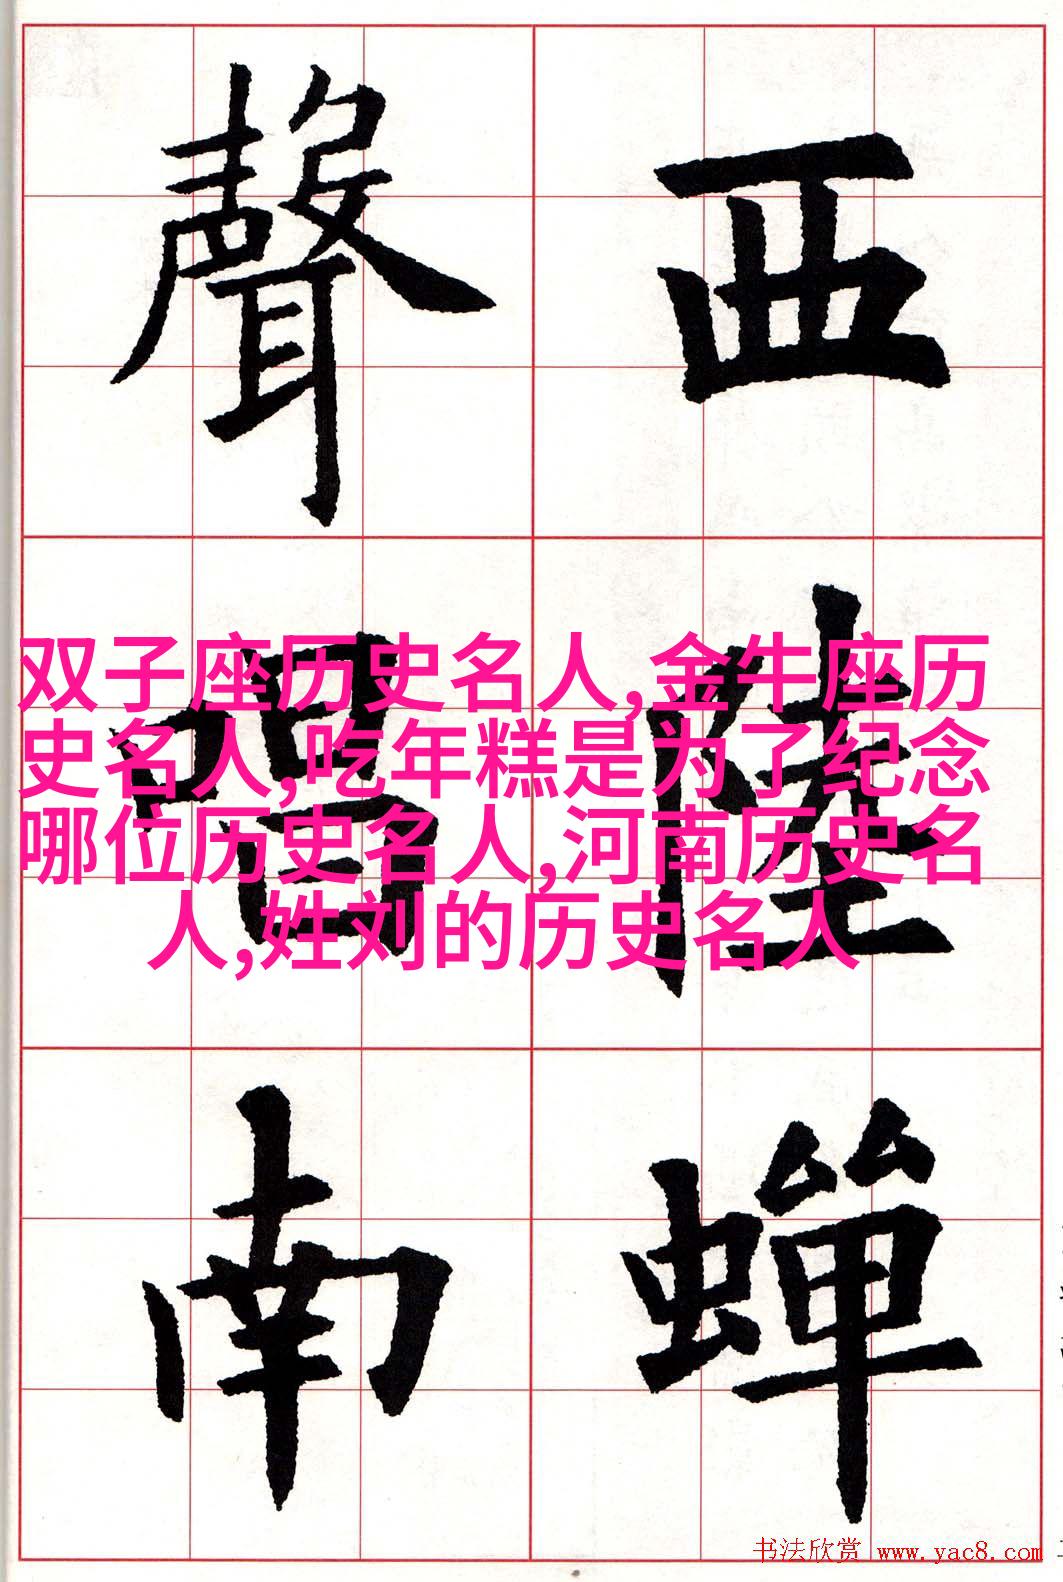 西陸蟬
聲唱南
双子座历史名人,金牛座历
史名人,吃年糕是为了纪念
哪位历史名人,河南历史名
人,姓刘的历史名人
书法欣赏 www.yac8.com